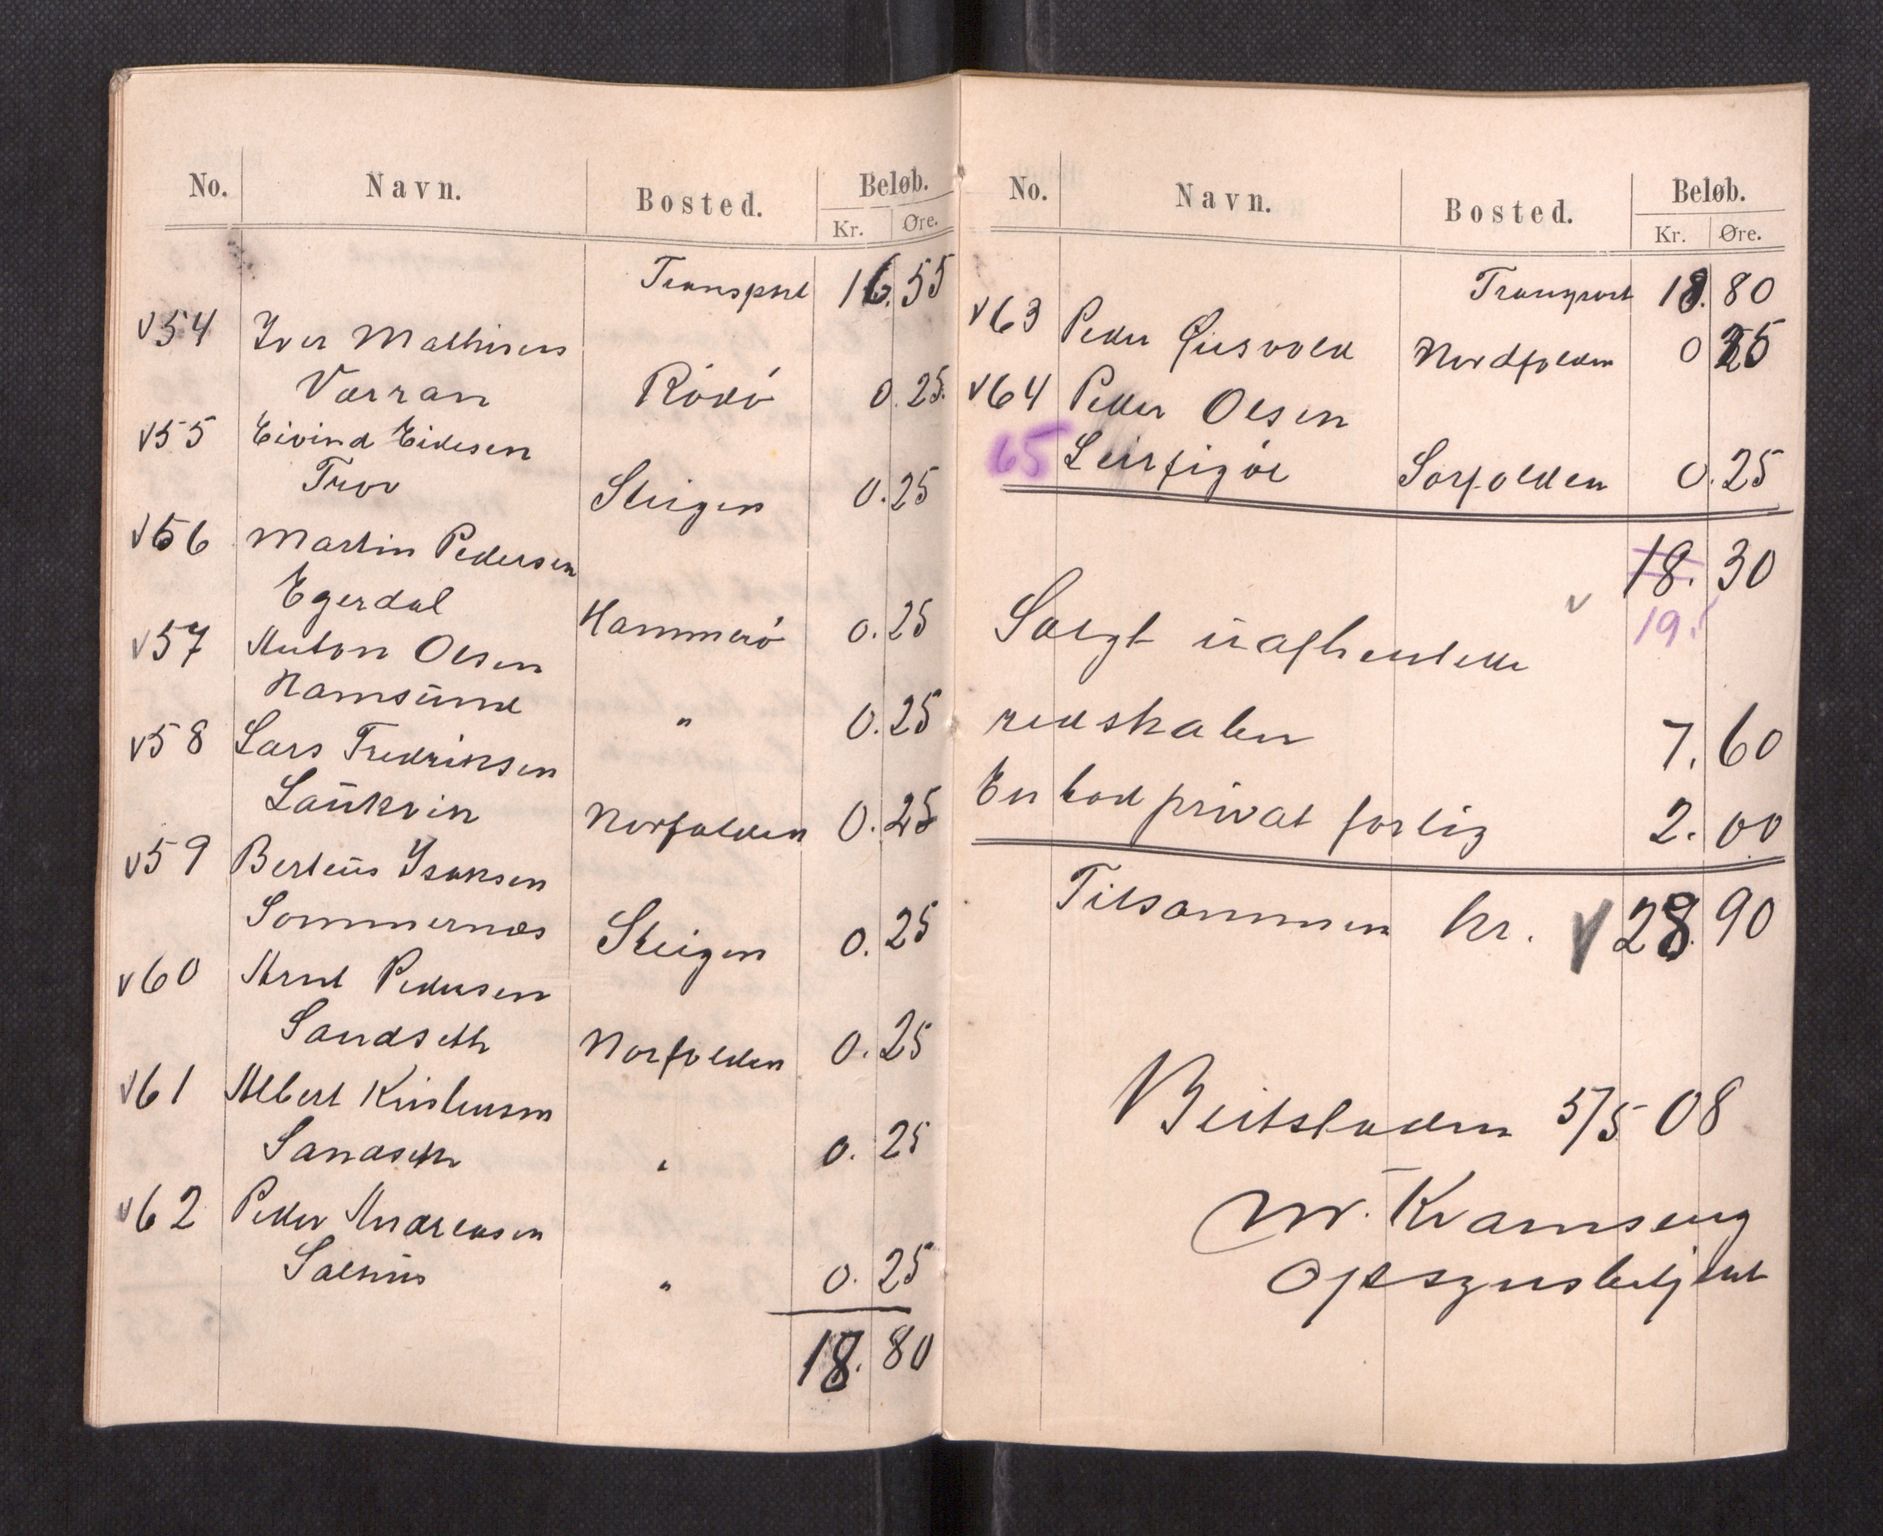 No. Navn. Bosted. Beløb.
Kr. Øre.
Transport 16.55
v54 Iver Mathisens
Værran Rödö 0.25.
v55 Eivind Eidesen
Trov Steigen 0.25
v56 Martin Pedersen
Egerdal Hammerö 0.25
v57 Anton Olsen
Hamsund " 0.25
v58 Lars Fredriksen
Laukvin Norfolden 0.25
v59 Berteus Isaksen
Sommernæs Steigen 0.25
v60 Arnt Pedersen
Sandseth Norfolden 0.25
v61 Albert Kristensen
Sandseth " 0.25
v62 Peder Andreasen
Salhus " 0.25
18.80
No. Navn. Bosted. Beløb.
Kr. Øre.
Transport 18.80
v63 Peder Nordfolden 0 25
v64 Peder Olsen
65 Leirfigöl Sorfolden 0.25
18.30
v 19.
Solgt uafhentede
redskaber 7.60
En bod privat forlig 2.00
Tilsammen kr. v 28.90
Beitstaden 5/5 08
M. Kramseng
Opsynsbetjent